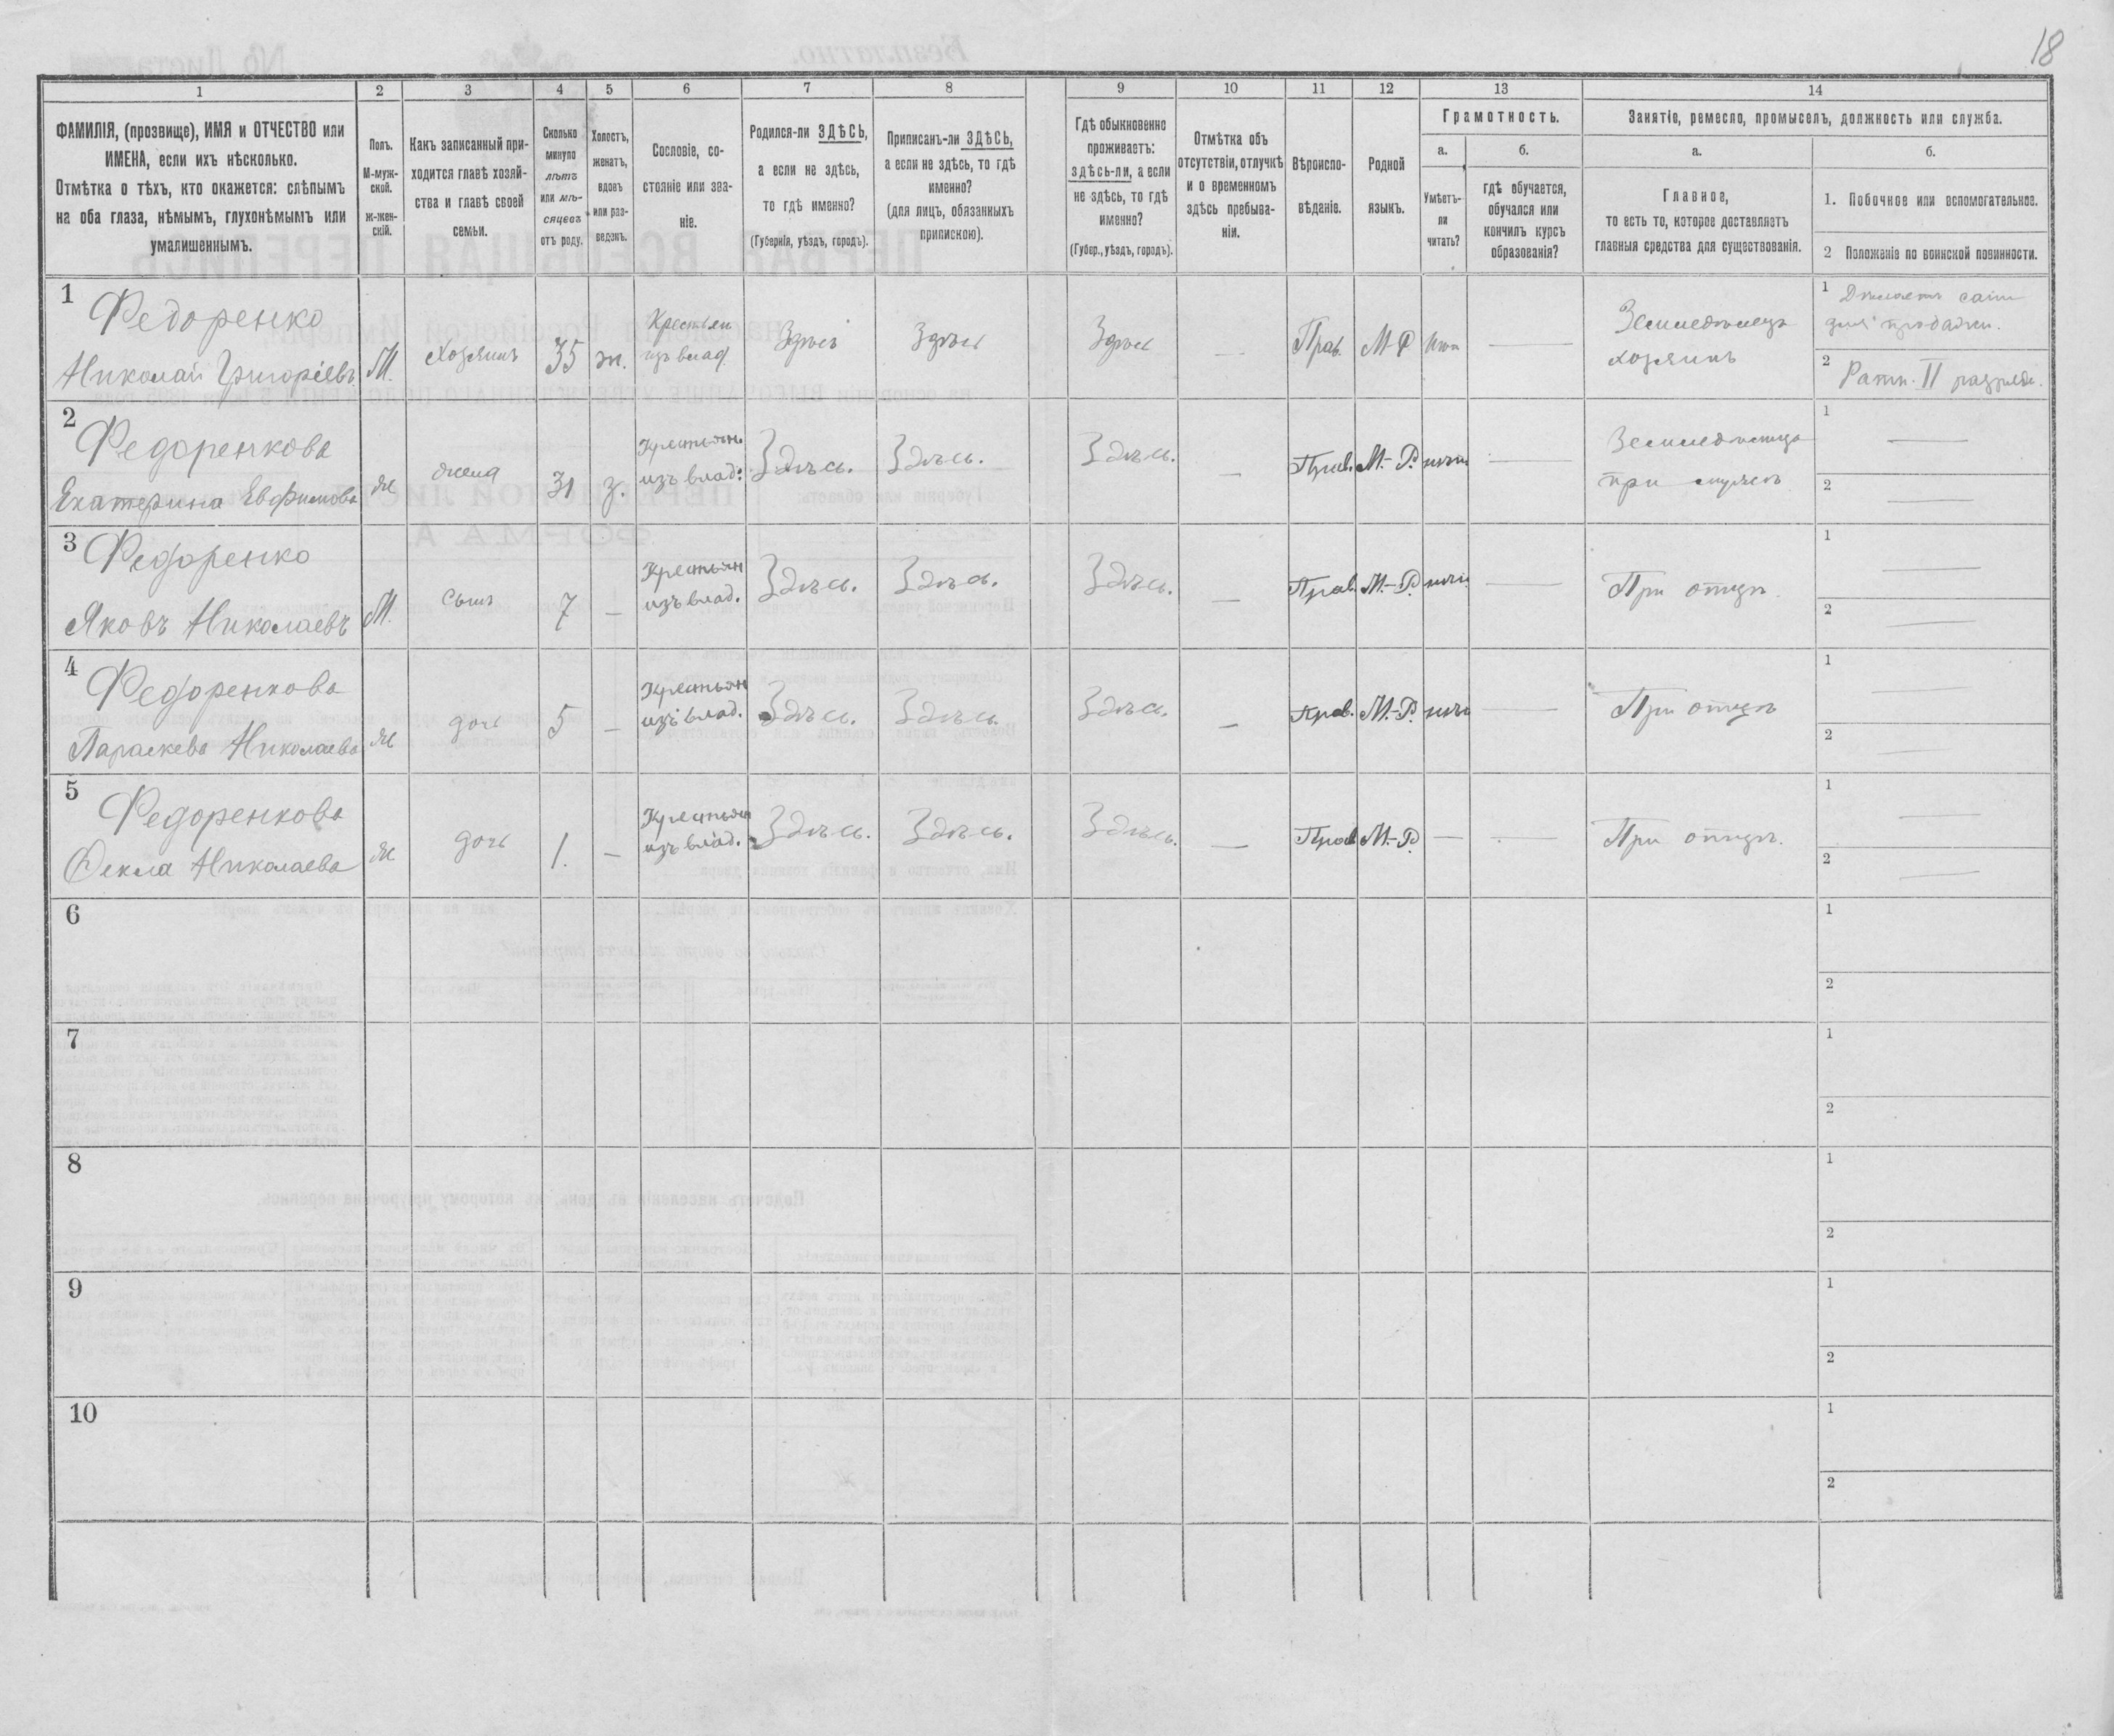 18
1 2 3 4 5 6 7 8 9 10 11 12 13 14
ФАМИЛІЯ, (прозвище), ИМЯ и ОТЧЕСТВО или
ИМЕНА, если ихъ нѣсколько.
Отмѣтка о тѣхъ, кто окажется: слѣпымъ
на оба глаза, нѣмымъ, глухонѣмымъ или
умалишеннымъ.
Полъ.
М-муж-
ской.
ж-жен-
скій.
Какъ записанный при-
ходится главѣ хозяй-
ства и главѣ своей
семьи.
Сколько
минуло
лѣтъ
или мѣ-
сяцевъ
отъ роду.
Холостъ,
женатъ,
вдовъ
или раз-
веденъ.
Сословіе, со-
стояніе или зва-
ніе.
Родился-ли ЗДѢСЬ,
а если не здѣсь,
то гдѣ именно?
(Губернія, уѣздъ, городъ).
Приписанъ-ли ЗДѢСЬ,
а если не здѣсь, то гдѣ
именно?
(для лицъ, обязанныхъ
припискою).
Гдѣ обыкновенно
проживаетъ:
здѣсь-ли, а если
не здѣсь, то гдѣ
именно?
(Губер., уѣздъ, городъ).
Отмѣтка объ
отсутствіи, отлучкѣ
и о временномъ
здѣсь пребыва-
ніи.
Вѣроиспо-
вѣданіе.
Родной
языкъ.
Грамотность.
а.
Умѣетъ-
ли
читать?
б.
гдѣ обучается,
обучался или
кончилъ курсъ
образованія?
Занятіе, ремесло, промыселъ, должность или служба.
а.
Главное,
то есть то, которое доставляетъ
главныя средства для существованія.
б.
1. Побочное или вспомогательное.
2 Положеніе по воинской повинности.
1 Федоренко
Николай Григоріевъ М. Хозяинъ 35 ж. Крестьян изъ влад. Здѣсь Здѣсь Здѣсь — Прав. М-Р нѣтъ —
Земледѣлецъ
хозяинъ
1 Дѣлаетъ сани
для продажи.
2 Ратн. II разряда.
2 Федоренкова
Екатерина Евфимова ж жена 31 з. Крестьянъ изъ влад. Здѣсь. Здѣсь. Здѣсь. — Прав. М.-Р. нѣтъ —
при мужѣ
1 —
2 —
3 Федоренко
Яковъ Николаевъ М. сынъ 7 — Крестьян изъ влад. Здѣсь. Здѣсь. Здѣсь. — Прав. М.-Р. нѣтъ — При отцѣ
1 —
2 —
4 Федоренкова
Параскева Николаева ж дочь 5 — Крестьян изъ влад. Здѣсь. Здѣсь. Здѣсь. — Прав. М.-Р. нѣтъ — При отцѣ
1 —
2 —
5 Федоренкова
Фекла Николаева ж дочь 1. — Крестьян изъ влад. Здѣсь. Здѣсь. Здѣсь. — Прав М.-Р. — — При отцѣ.
1 —
2 —
6 1
2
7 1
2
8 1
2
9 1
2
10 1
2